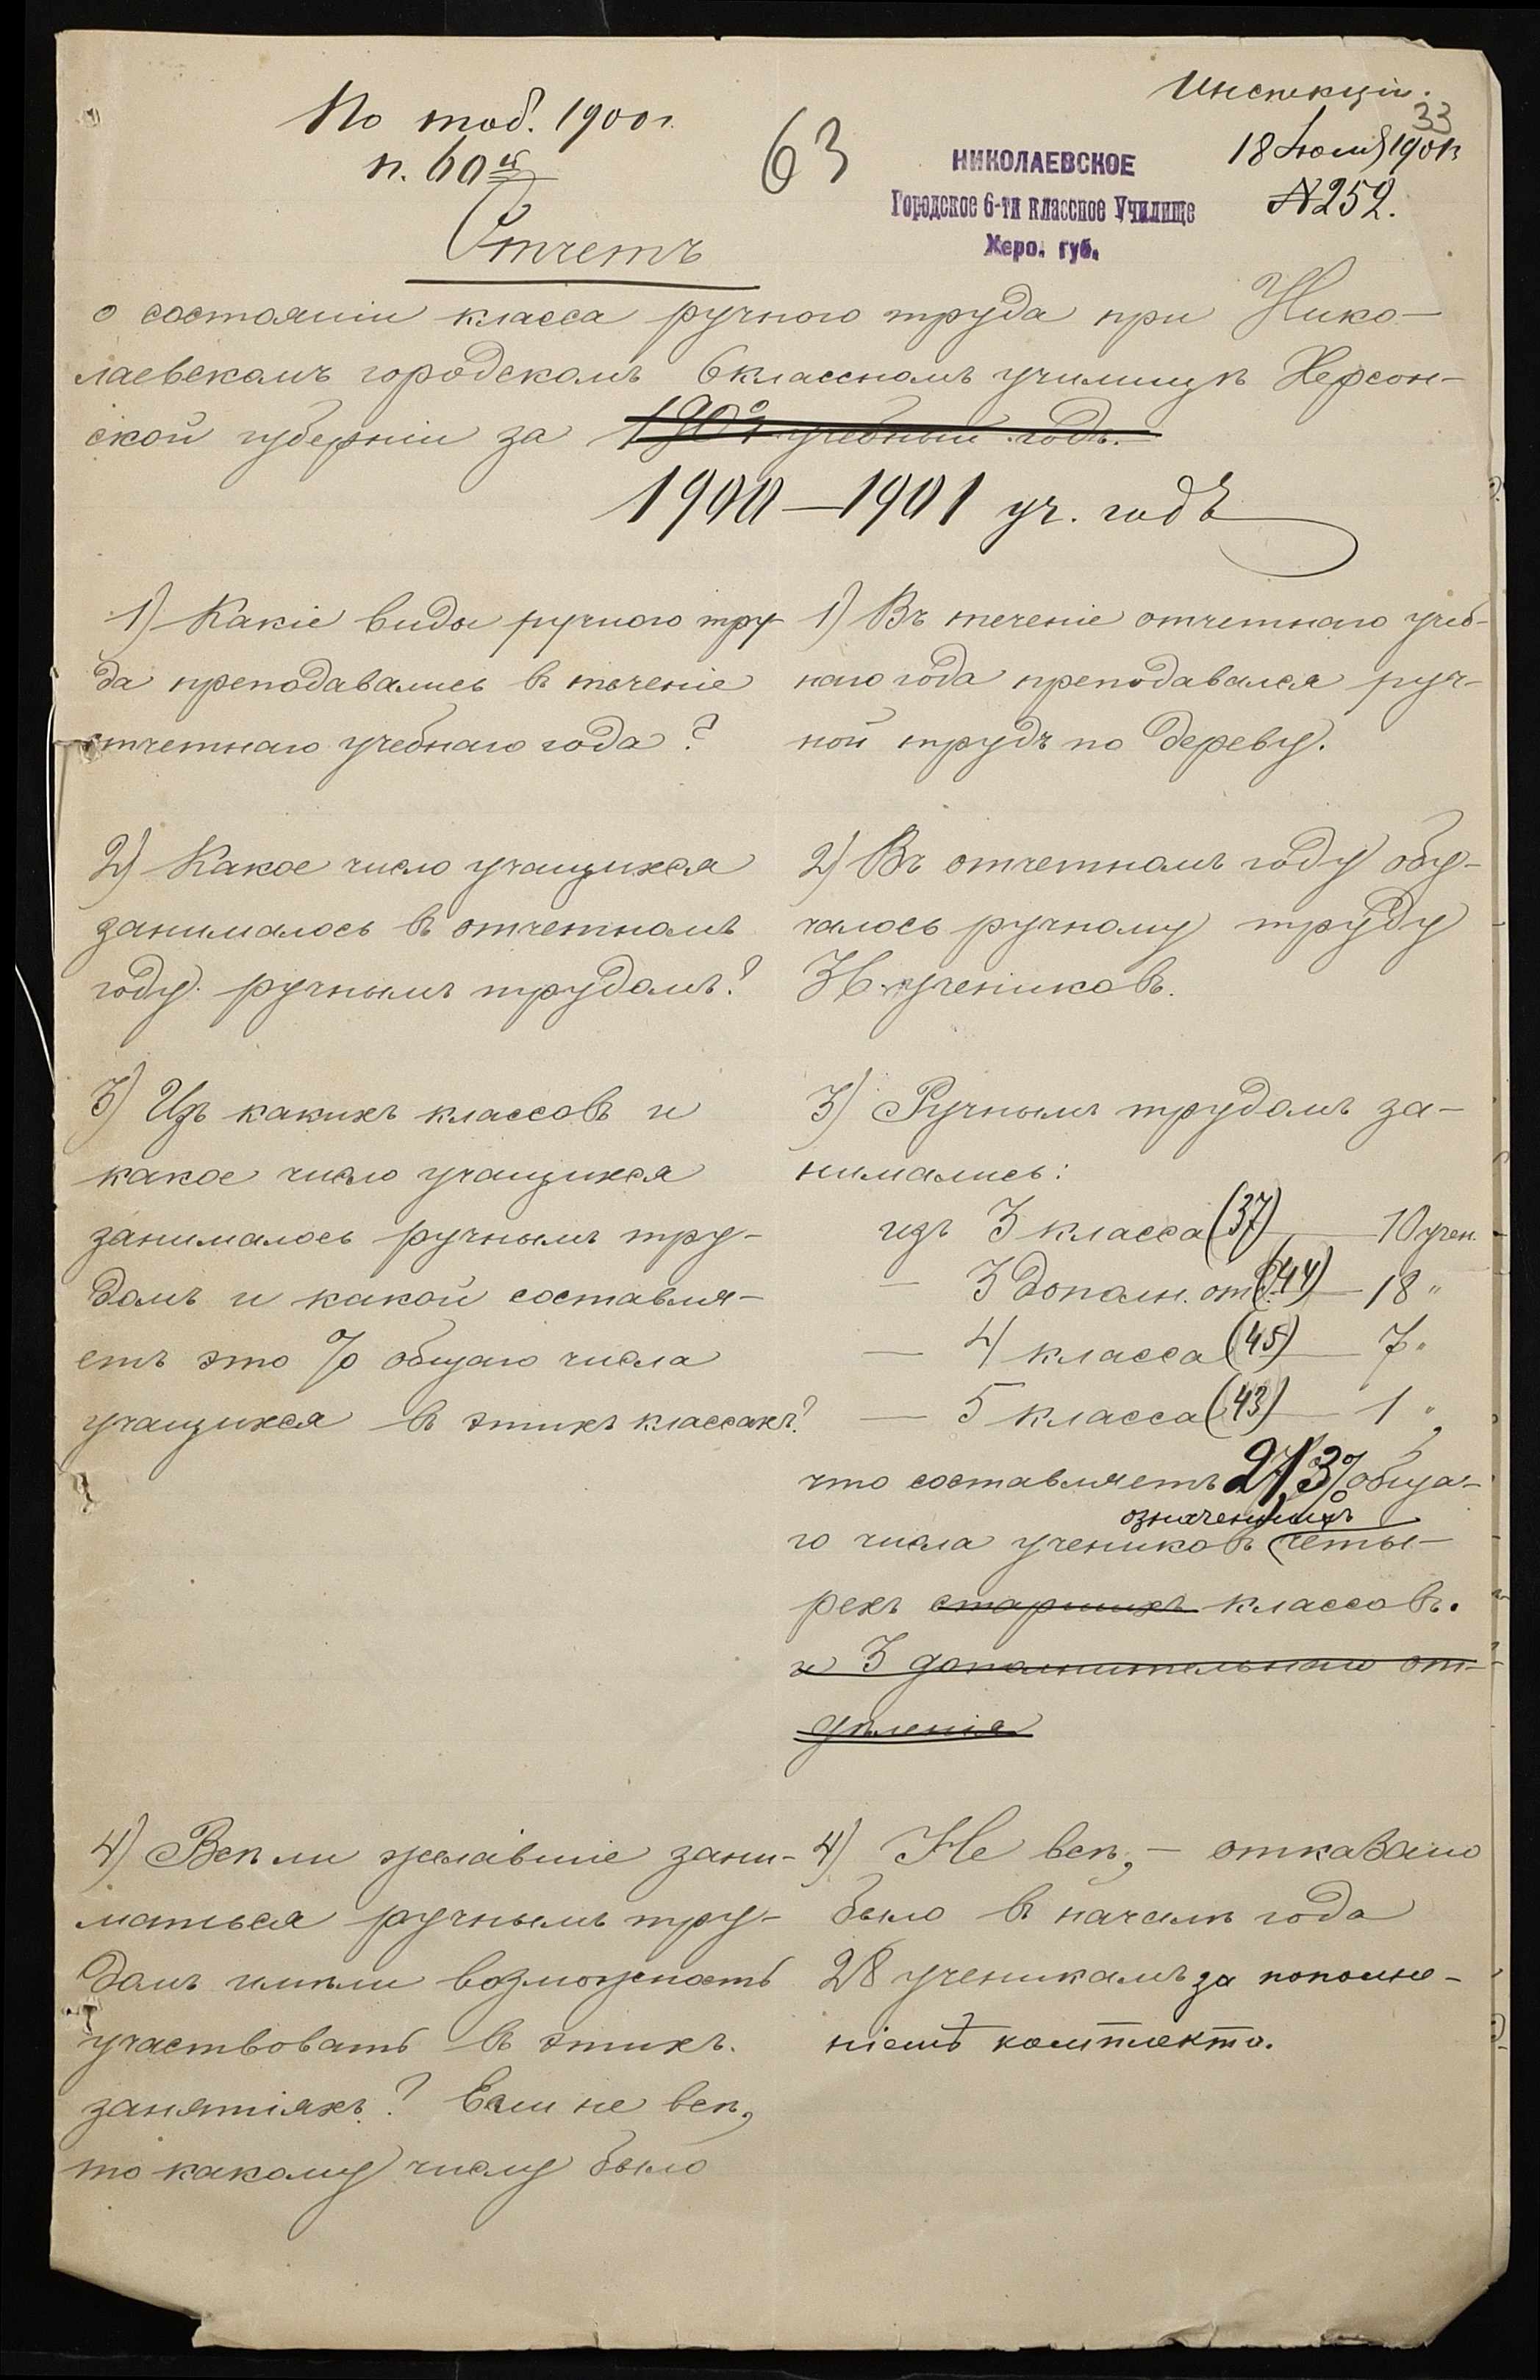 Инспекціи.
По таб. 1900 г.
п. 60
63
33
18 Іюня 1901 г.
№ 252.
НИКОЛАЕВСКОЕ
Городское 6-ти классное Училище
Херс. губ.
Отчетъ
о состояніи класса ручного труда при Нико-
лаевскомъ городскомъ 6 классномъ училищѣ Херсон-
ской губерніи за 1901 учебный годъ.
1900—1901 уч. годъ
1) Какіе виды ручного тру-
да преподавались въ теченіе
отчетнаго учебнаго года?
1) Въ теченіе отчетнаго учеб-
наго года преподавался руч-
ной трудъ по дереву.
2) Какое число учащихся
занималось въ отчетномъ
году ручнымъ трудомъ?
2) Въ отчетномъ году обу-
чалось ручному труду
36 учениковъ.
3) Изъ какихъ классовъ и
какое число учащихся
занималось ручнымъ тру-
домъ и какой составля-
етъ это % общаго числа
учащихся въ этихъ классахъ?
3) Ручнымъ трудомъ за-
нимались:
изъ 3 класса (37) — 10 учен.
— 3 дополн. отд. (44) — 18 "
— 4 класса (45) — 7 "
— 5 класса (43) — 1 "
что составляетъ 21,3% обща-
означенныхъ
го числа учениковъ четы-
рехъ старшихъ классовъ.
и 3 дополнительнаго от-
дѣленія
4) Всѣ ли желавшіе зани-
маться ручнымъ тру-
домъ имѣли возможность
участвовать въ этихъ
занятіяхъ? Если не всѣ,
то какому числу было
4) Не всѣ, — отказано
было въ началѣ года
28 ученикамъ за пополне-
ніемъ комплекта.